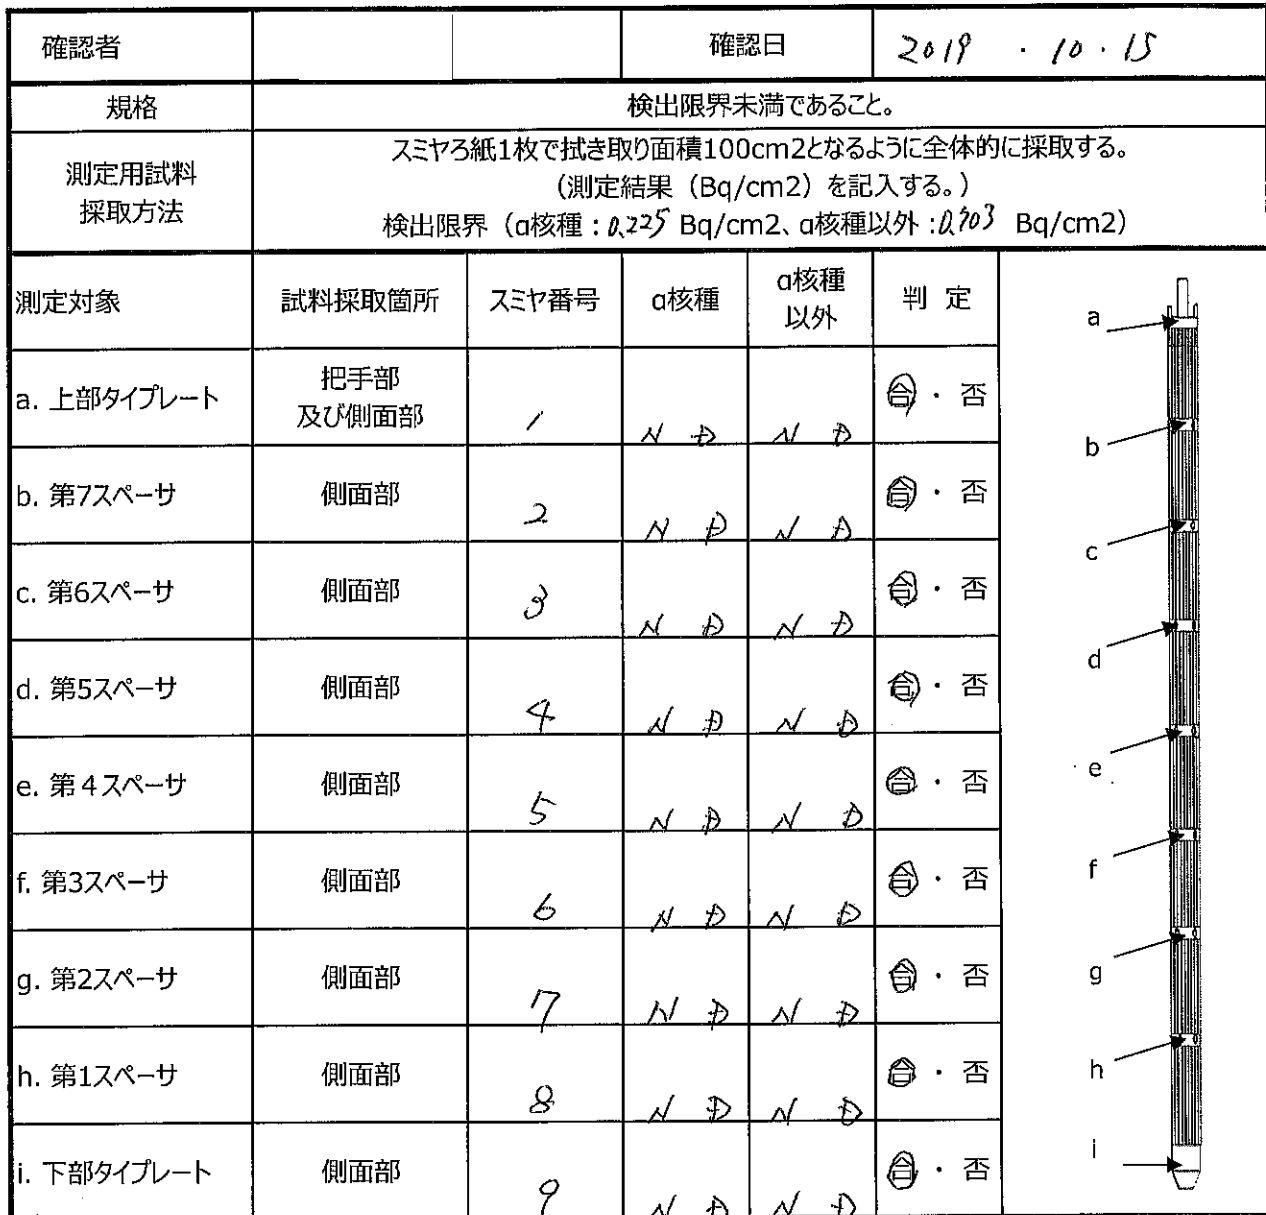 確認者 確認日 2019 ・ 10 ・ 15
規格 検出限界未満であること。
測定用試料
採取方法
スミヤろ紙1枚で拭き取り面積100cm2となるように全体的に採取する。
(測定結果（Bq/cm2）を記入する。)
検出限界（α核種：0.225 Bq/cm2、α核種以外：0.903 Bq/cm2）
測定対象 試料採取箇所 スミヤ番号 α核種 α核種以外 判 定
a. 上部タイプレート 把手部及び側面部 1 N D N D 合・否
b. 第7スペーサ 側面部 2 N D N D 合・否
c. 第6スペーサ 側面部 3 N D N D 合・否
d. 第5スペーサ 側面部 4 N D N D 合・否
e. 第４スペーサ 側面部 5 N D N D 合・否
f. 第3スペーサ 側面部 6 N D N D 合・否
g. 第2スペーサ 側面部 7 N D N D 合・否
h. 第1スペーサ 側面部 8 N D N D 合・否
i. 下部タイプレート 側面部 9 N D N D 合・否
a
b
c
d
e
f
g
h
i